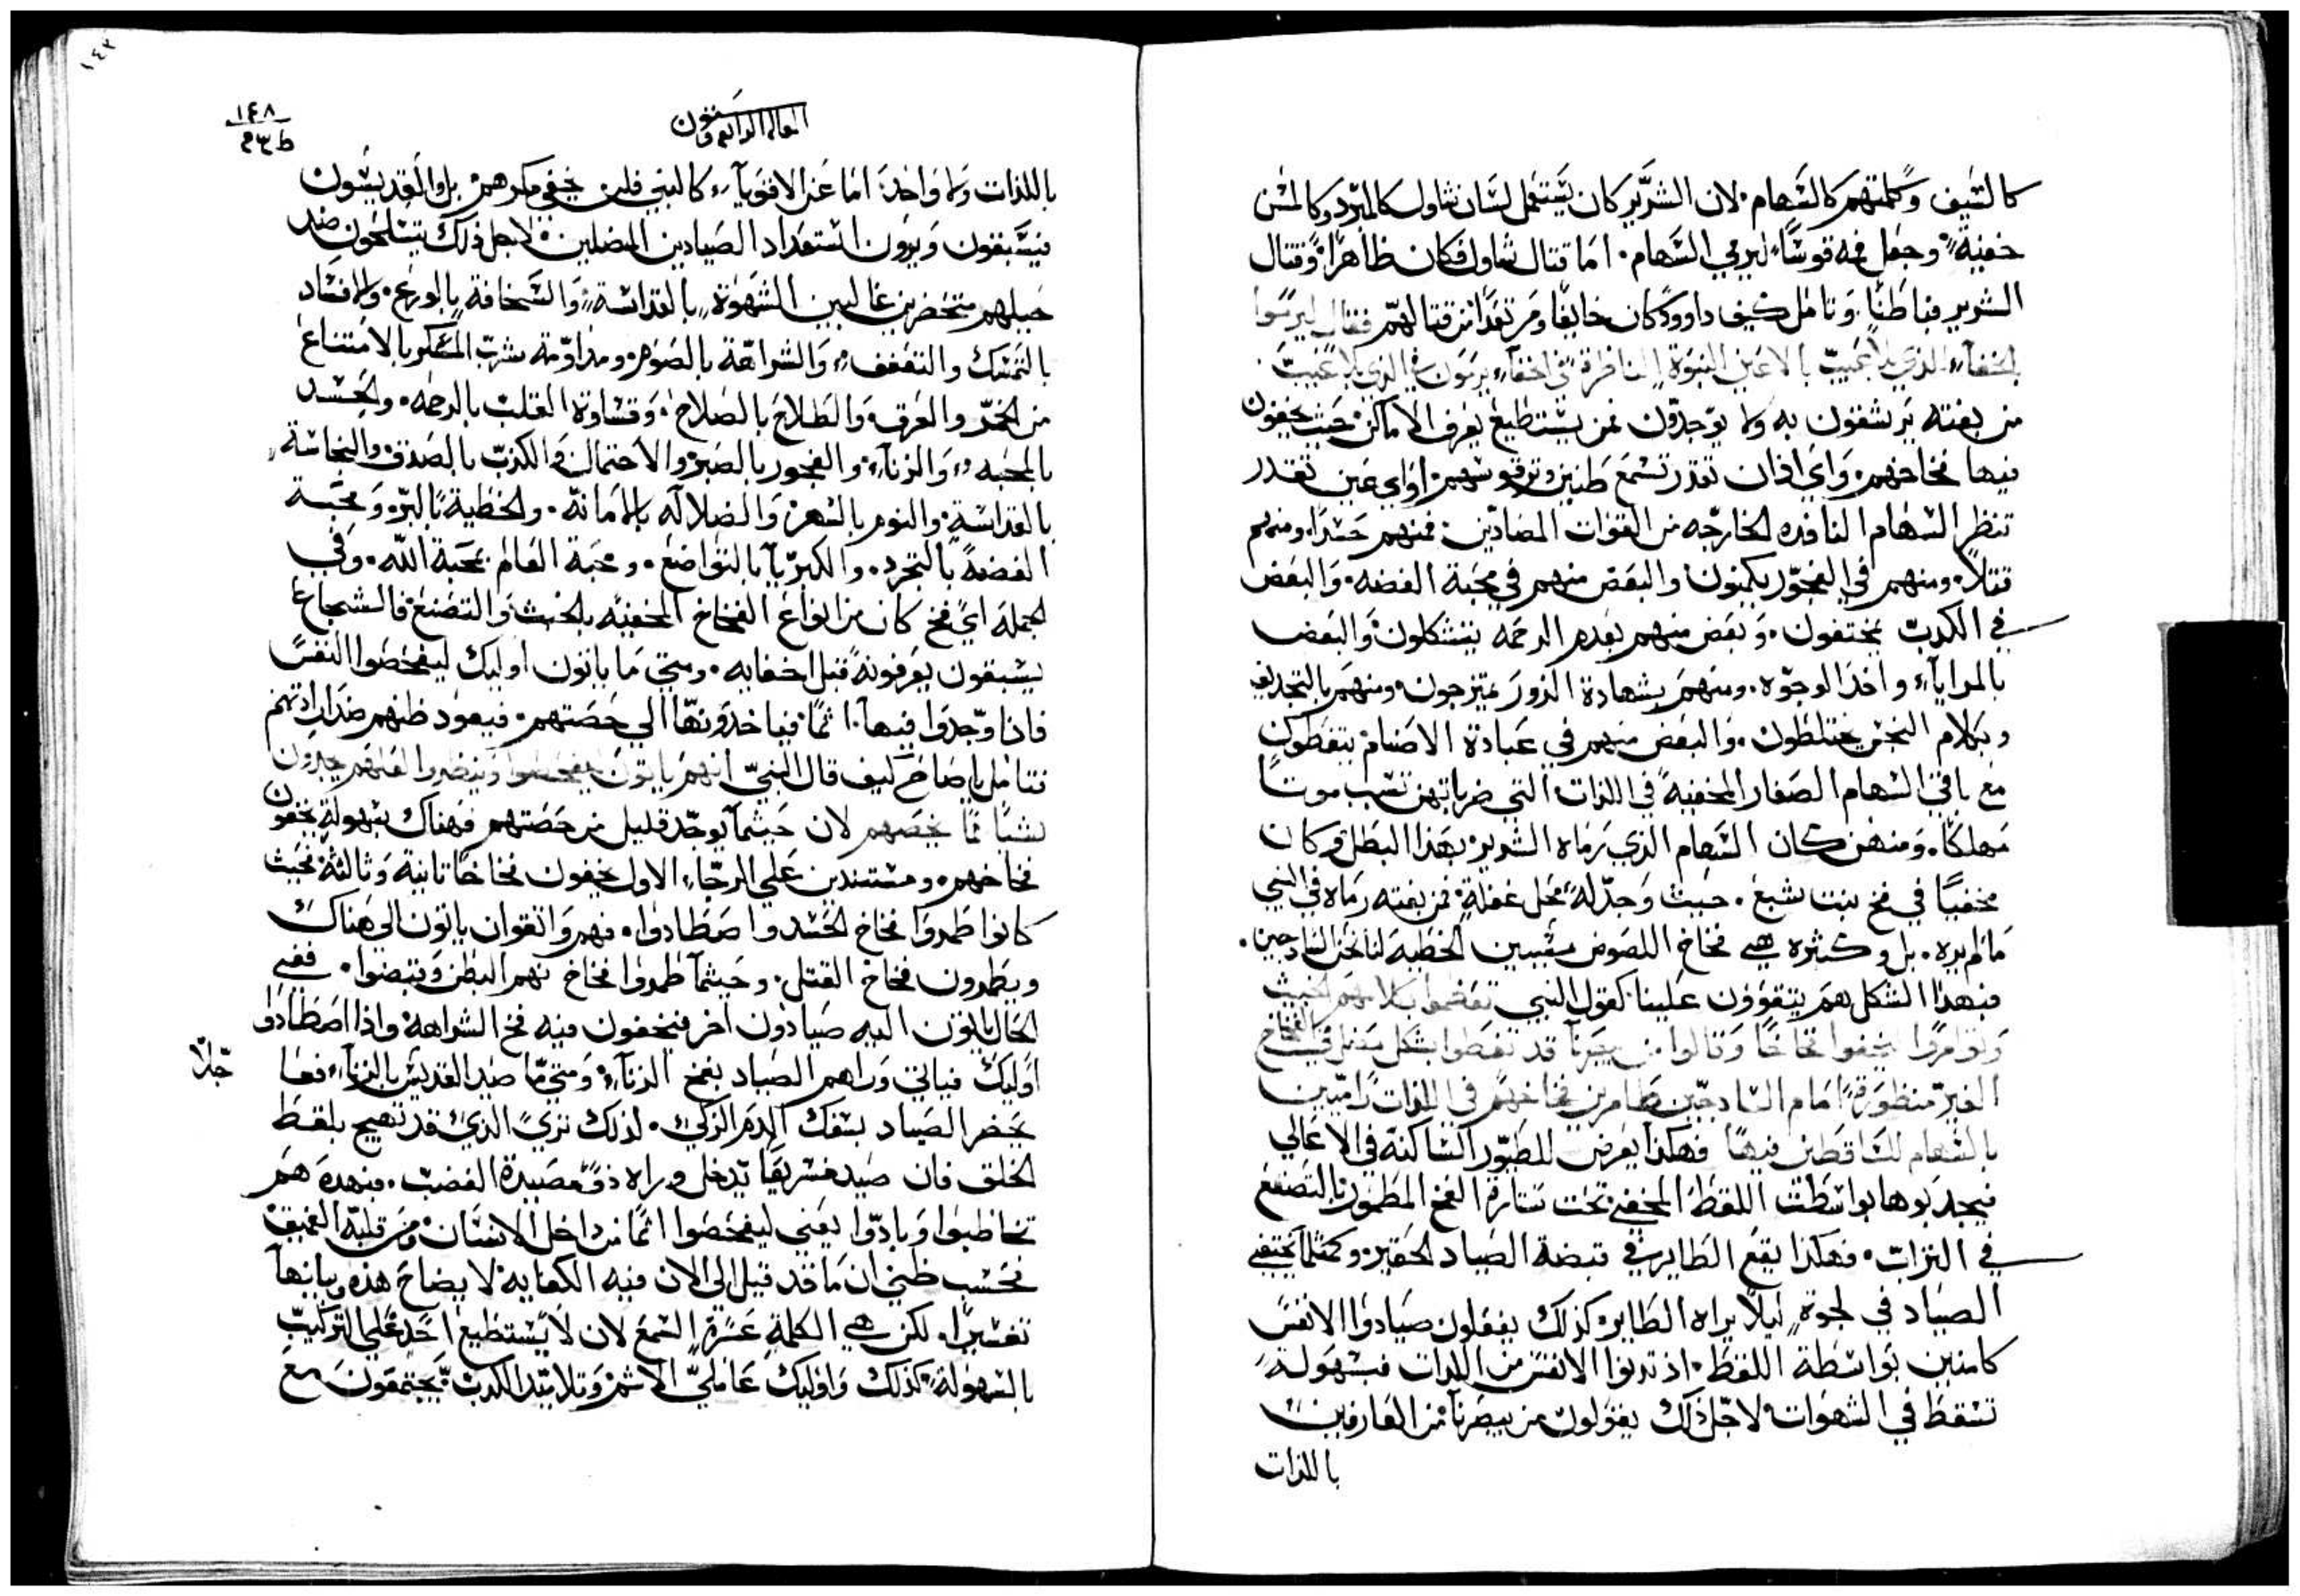 كالسيف وكلمتهم كالسهام. لان الشرير كان يستعمل لسان شاول كالمبرد وكالمسن
خفية. وجعل فمه قوسًا ليرمي السهام. اما قتال شاول فكان ظاهرًا وقتال
الشرير فباطنًا. وتامل كيف داوود كان خايفًا ومرتعدًا من قتالهم فقال ليرموا
بالخفاء الذي بلا عيب بالاعين النبوة الناظرة في اخفاء يرمون الذي بلا عيب
من بغته يرشقون به ولا يوجدون فمن يستطيع يعرف الاماكن حيث يخفون
فيها فخاخهم. واي اذان تقدر تسمع طنين وتر قوسهم. او اي عين تقدر
تنظر السهام النافده الخارجه من القوات المضادين. فمنهم حسدًا. ومنهم
قتلاً. ومنهم في الفجور يكمنون والبعض منهم في محبة الفضه. والبعض
في الكدب يختفون. وبعض منهم بعدم الرحمه يتشكلون والبعض
بالمراياء واخذ الوجوه. ومنهم بشهادة الزور يمتزجون. ومنهم بالتجديف
وبكلام النجس يختلطون. والبعض منهم في عبادة الاصنام يتغطون
مع باقي السهام الصغار المخفية في اللذات التي ضرباتهن تسبب موتًا
مهلكًا. ومنهن كان السهام الذي رماه الشرير بهذا البطل وكان
مخفيًا في فخ بنت سبع. حيث وجد له محل غفلة. فمن بغته رماه في النبي
مالم يره. بل وكثيره هي فخاخ اللصوص مسببين الخطيه لنا نحن السادجين.
فبهذا الشكل هم يتقوون علينا كقول النبي تعضموا بكلامهم الخبيث
وتوامروا ليخفوا فخاخًا وقالوا من يبصرنا قد تغطوا بشكل مضل في الفخاخ
الغير منظورة امام السادجين طامرين فخاخهم في اللذات راميين
بالسهام للساقطين فيها فهكذا يعرض للطيور الساكنة في الاعالي
فيجدبوها بواسطت اللقط المخفي تحت ستارة الفخ المطمور بالتصنع
في التراب. فهكذا يقع الطاير في قبضة الصياد الحقير. وكمثلما يختفي
الصياد في لجوة ليلاً يراه الطاير. كذلك يفعلون صيادوا الانفس
كامنين بواسطة اللقط. اذ تدنوا الانفس من اللدات فبسهولة
تسقط في الشهوات. لاجل ذلك يقولون من يبصرنا من العارفين
باللذات
١٤٣
١٤٨
باللذات ولا واحد. اما عن الاقوياء كالنبي فلن يخفي مكرهم بل والقديسون
فيسبقون ويرون استعداد الصيادين المضلين. لاجل ذلك يتسلحون ضد
حيلهم متحضرين غالبين الشهوة بالقداسة. والسخافة بالورع. والافساد
بالتمسك والتعفف. والشراهة بالصوم. ومداومة شرب المسكر بالامتناع
من الخمر والعرق. والطلاح بالصلاح. وقساوة القلب بالرحمه. والحسد
بالمحبه. والزناء. والفجور بالصبر والاحتمال والكذب بالصدق والنجاسة
بالقداسة. والنوم بالسهر. والضلاله بالامانه. والخطية بالبر. ومحبة
الفضة بالتجرد. والكبريا بالتواضع. ومحبة العالم بمحبة الله. وفي
الجمله اي فخ كان من انواع الفخاخ المخفيه بالخبث والتصنع فالشجاع
يسبقون يعرفونه قبل اخفايه. ومتي ما ياتون اوليك ليفحصوا النفس
فاذا وجدوا فيها اثمًا فياخدونها الي حصتهم. فيعود ظنهم ضد ارادتهم
فتامل يا صاح كيف قال النبي انهم ياتون ليفحصوا وينضروا لعلهم يجدون
شيئًا مما يخصهم لان حيثما يوجد قليل من حصتهم فهناك بسهولة يخفون
فخاخهم. ومستندين علي الرجاء الاول يخفون فخاخًا تانية وثالثة. فحيث
كانوا طمروا فخاخ الحسد واصطادوا. فهم واتقوان ياتون الي هناك
ويطمرون فخاخ القتل. وحيثما طمروا فخاخ نهم البطن وقبضوا. ففي
الحال ياتون اليه صيادون اخر فيخفون فيه فخ الشراهة واذا اصطادوا
اوليك فياتي وراهم الصياد بفخ الزناء. ومتي ما صيد القديس بالزناء فعا
جلاً
يحضر الصياد بسفك الدم الزكي. لذلك تري الذي قد تهيج بلقط
الخلق فان صيد فسريعًا يدخل وراه مصيدة الغضب. فبهده هم
تخاطبوا وبادوا يعني ليفحصوا اثمًا من داخل الانسان ومن قلبه العميق
فحسب ظني ان ما قد قيل الي الان فيه الكفايه لايضاح هذه وبيانها
تفسيرًا. لكن هي الكلمة عسرة السمع لان لا يستطيع احد علي التركيب
بالسهولة. كذلك واوليك عاملي الاثم وتلاميد الكدب يجتمعون مع